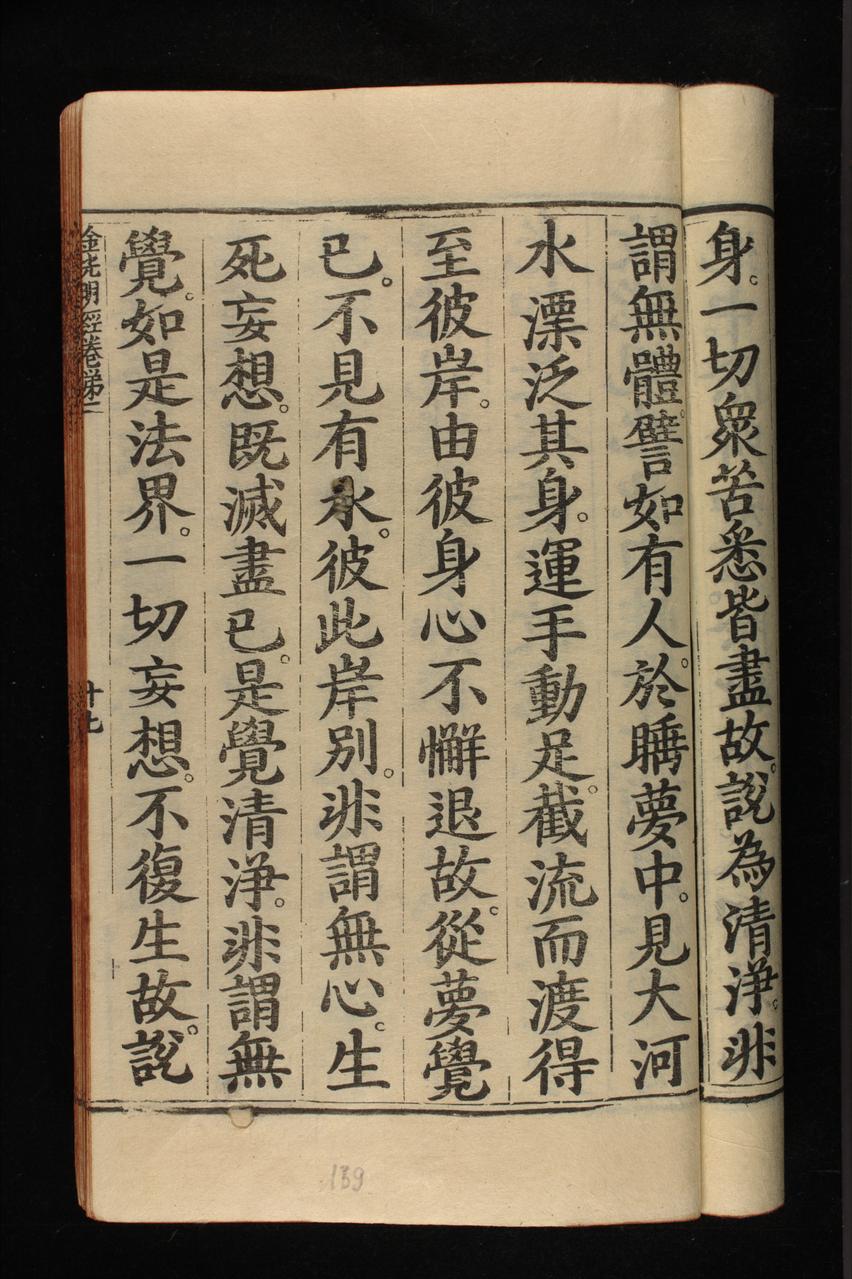 身。一切衆苦悉皆盡故。說為清淨。非
謂無體。譬如有人。於睡夢中。見大河
水漂泛其身。運手動足。截流而渡得
至彼岸。由彼身心不懈退故。從夢覺
已。不見有水。彼此岸別。非謂無心。生
死妄想。既滅盡已。是覺清淨。非謂無
覺。如是法界。一切妄想。不復生故。說
金光明經卷第二
十七
139